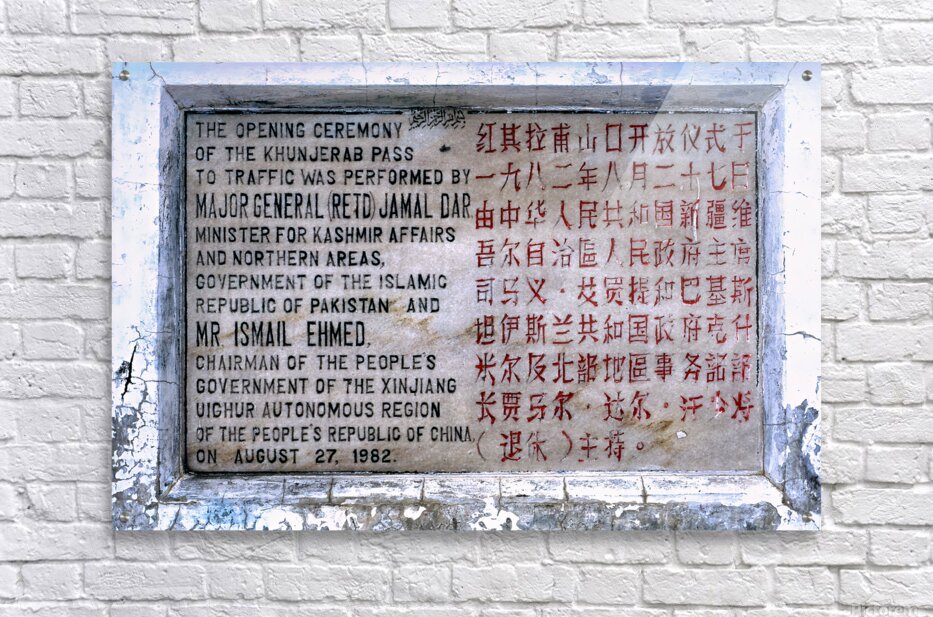 THE OPENING CEREMONY
OF THE KHUNJERAB PASS
TO TRAFFIC WAS PERFORMED BY
MAJOR GENERAL (RETD) JAMAL DAR,
MINISTER FOR KASHMIR AFFAIRS
AND NORTHERN AREAS,
GOVERNMENT OF THE ISLAMIC
REPUBLIC OF PAKISTAN AND
MR ISMAIL EHMED,
CHAIRMAN OF THE PEOPLE'S
GOVERNMENT OF THE XINJIANG
UIGHUR AUTONOMOUS REGION
OF THE PEOPLE'S REPUBLIC OF CHINA,
ON AUGUST 27, 1982.
红其拉甫山口开放仪式于
一九八二年八月二十七日
由中华人民共和国新疆维
吾尔自治區人民政府主席
司马义·艾買提和巴基斯
坦伊斯兰共和国政府克什
米尔及北部地區事务部部
长贾马尔·达尔·汗少将
（退休）主持。